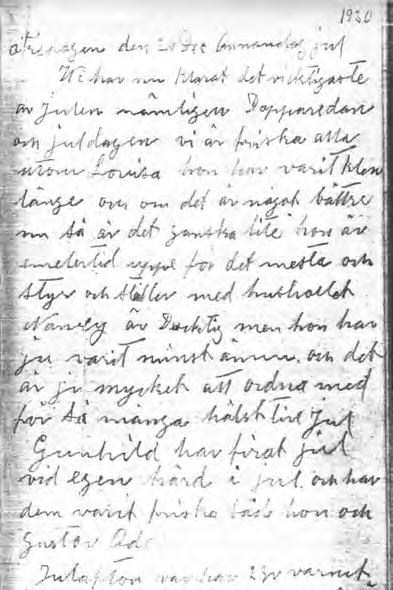 1930
den 26 Dec Annandag jul
Vi har nu klarat det vicktigaste
av julen nämligen Dopparedan
och juldagen vi är friska alla
utom Lovisa hon har varit klen
länge och om det är något bättre
nu så är det ganska lite hon är
emelertid uppe för det mesta och
styr och ställer med hushollet
Nancy är Ducktig men hon har
ju varit minst ännu och det
är ju mycket att ordna med
för så många hälst till jul
Gunhild har firat jul
vid egen härd i jul och har
dem varit friska både hon och
Gustav
Julafton var